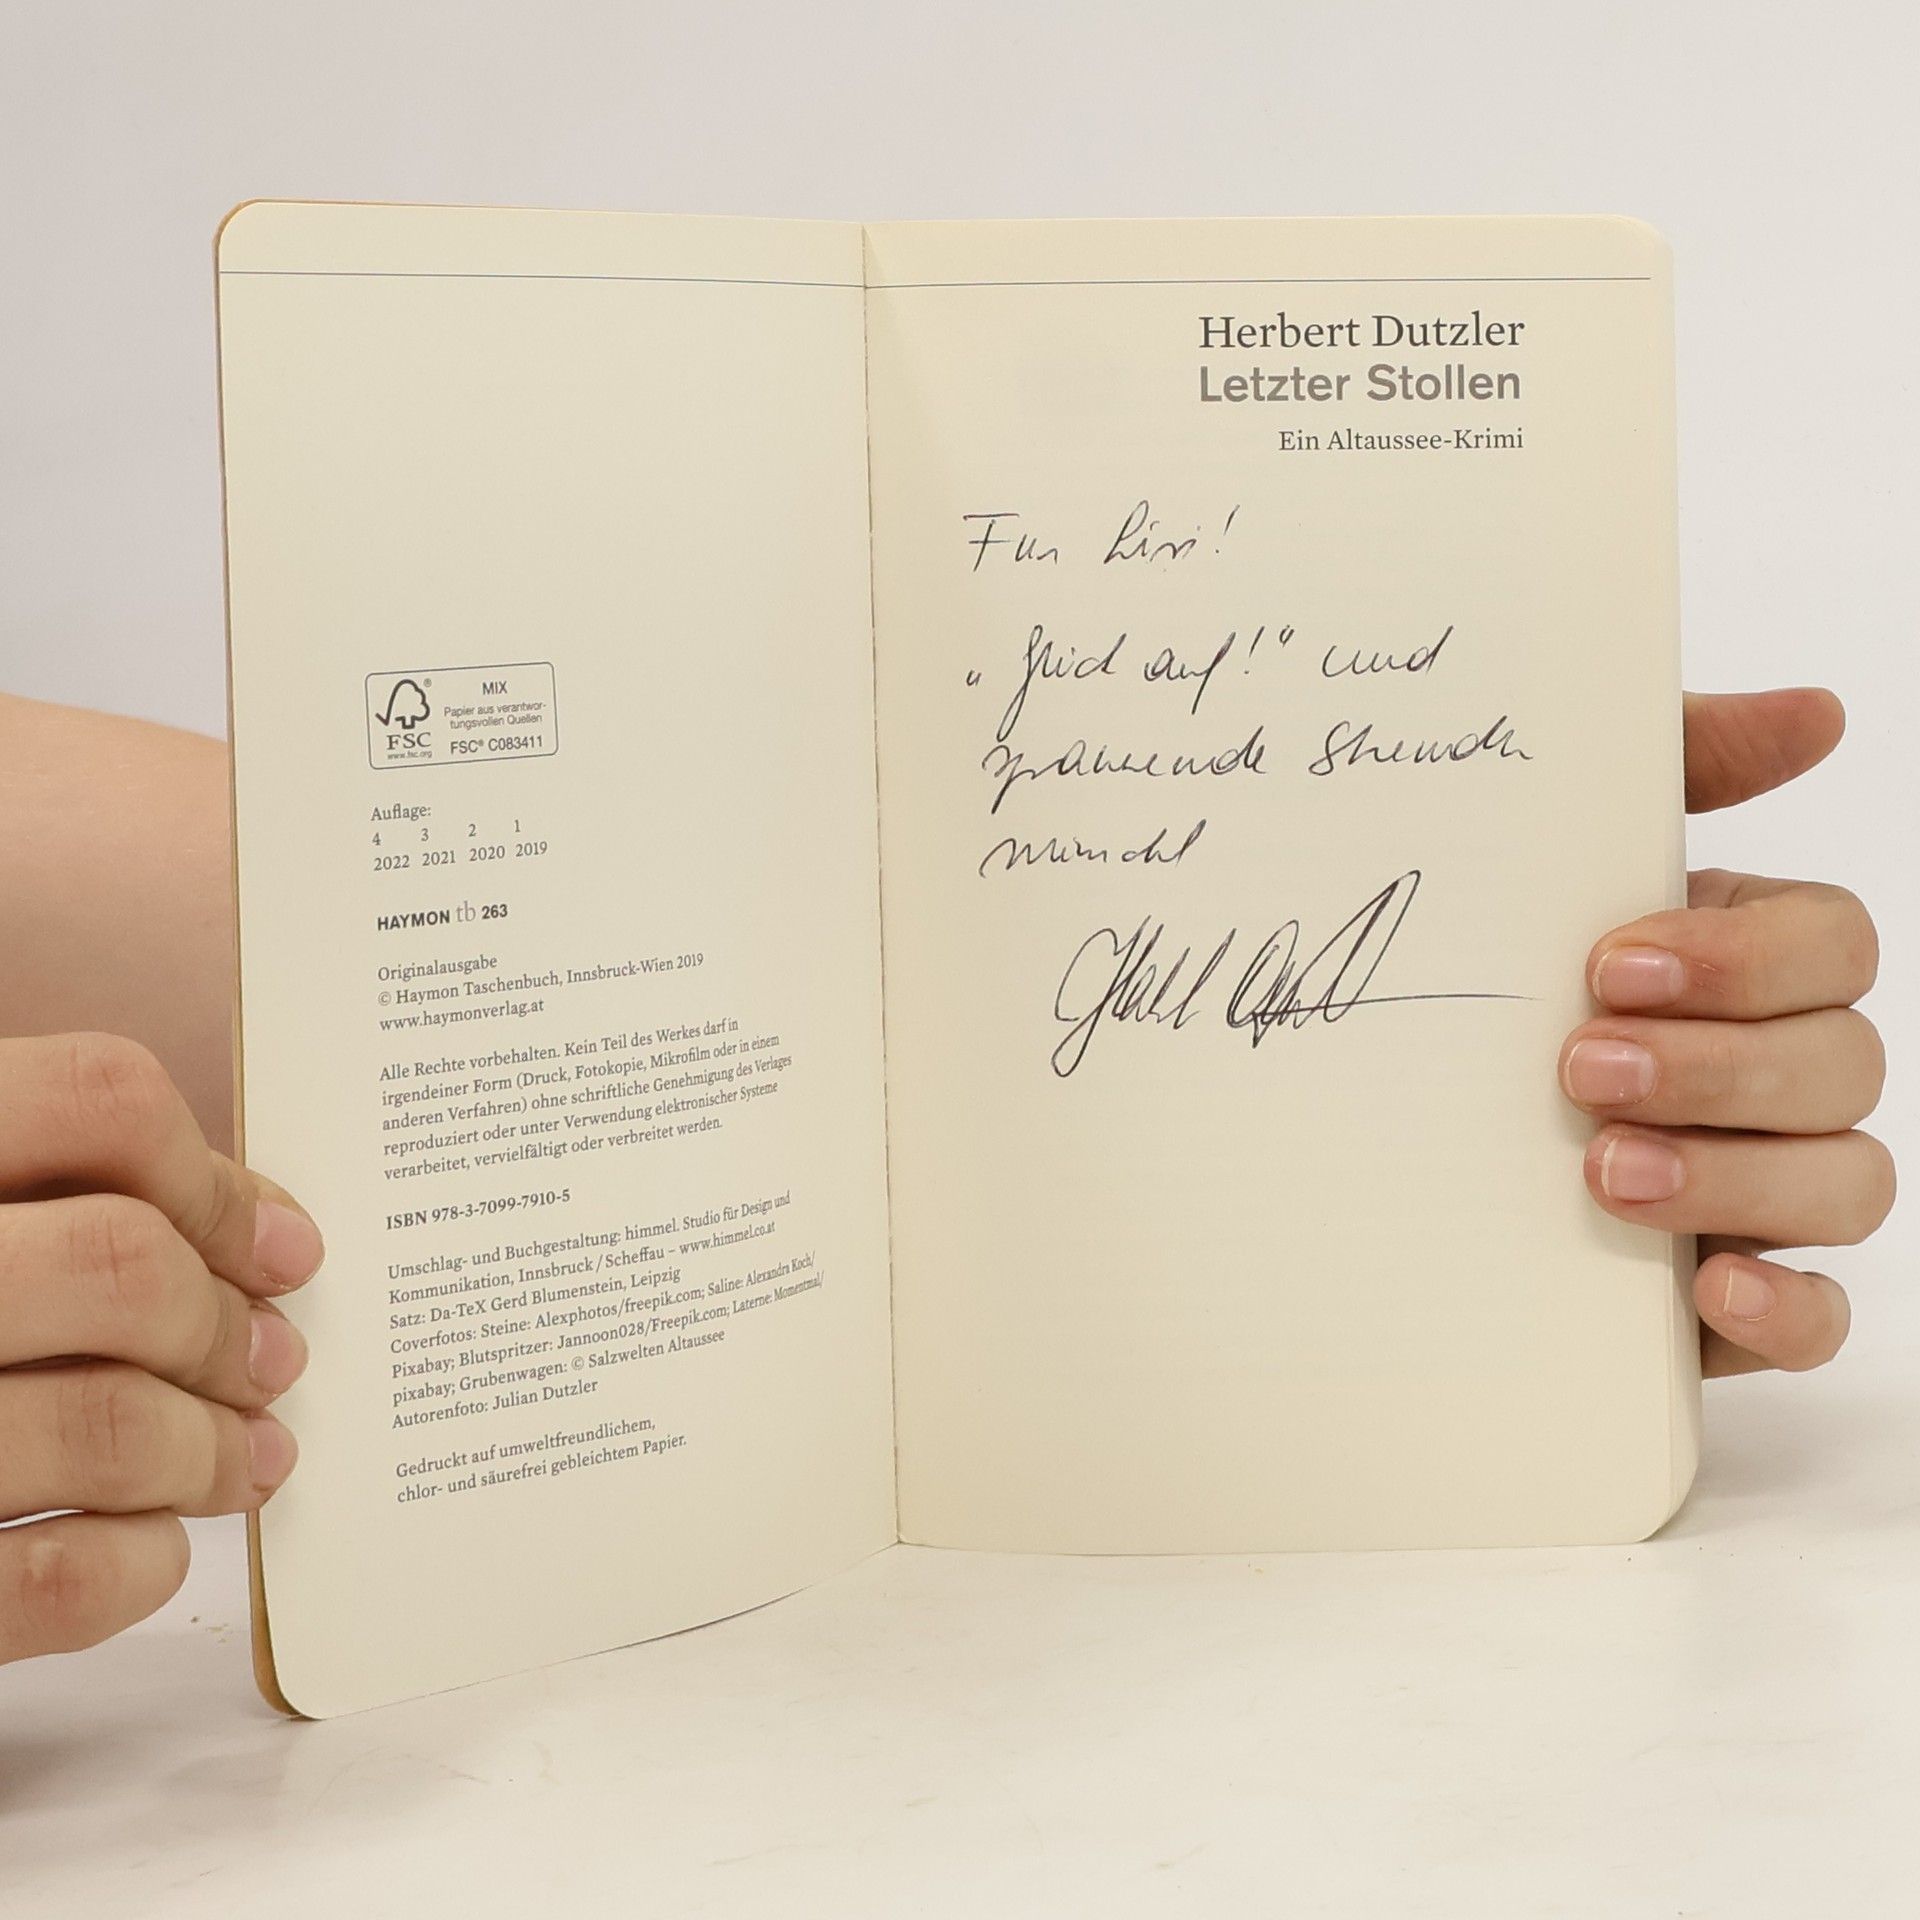 MIX
Papier aus verantwor-
tungsvollen Quellen
FSC® C083411
FSC
www.fsc.org
Auflage:
4 3 2 1
2022 2021 2020 2019
HAYMON tb 263
Originalausgabe
© Haymon Taschenbuch, Innsbruck-Wien 2019
www.haymonverlag.at
Alle Rechte vorbehalten. Kein Teil des Werkes darf in
irgendeiner Form (Druck, Fotokopie, Mikrofilm oder in einem
anderen Verfahren) ohne schriftliche Genehmigung des Verlages
reproduziert oder unter Verwendung elektronischer Systeme
verarbeitet, vervielfältigt oder verbreitet werden.
ISBN 978-3-7099-7910-5
Umschlag- und Buchgestaltung: himmel. Studio für Design und
Kommunikation, Innsbruck / Scheffau – www.himmel.co.at
Satz: Da-TeX Gerd Blumenstein, Leipzig
Coverfotos: Steine: Alexphotos/freepik.com; Saline: Alexandra Koch/
Pixabay; Blutspritzer: Jannoon028/Freepik.com; Laterne: Momentmal/
pixabay; Grubenwagen: © Salzwelten Altaussee
Autorenfoto: Julian Dutzler
Gedruckt auf umweltfreundlichem,
chlor- und säurefrei gebleichtem Papier.
Herbert Dutzler
Letzter Stollen
Ein Altaussee-Krimi
Für Lissi!
„Glück auf!“ und
spannende Stunden
wünscht